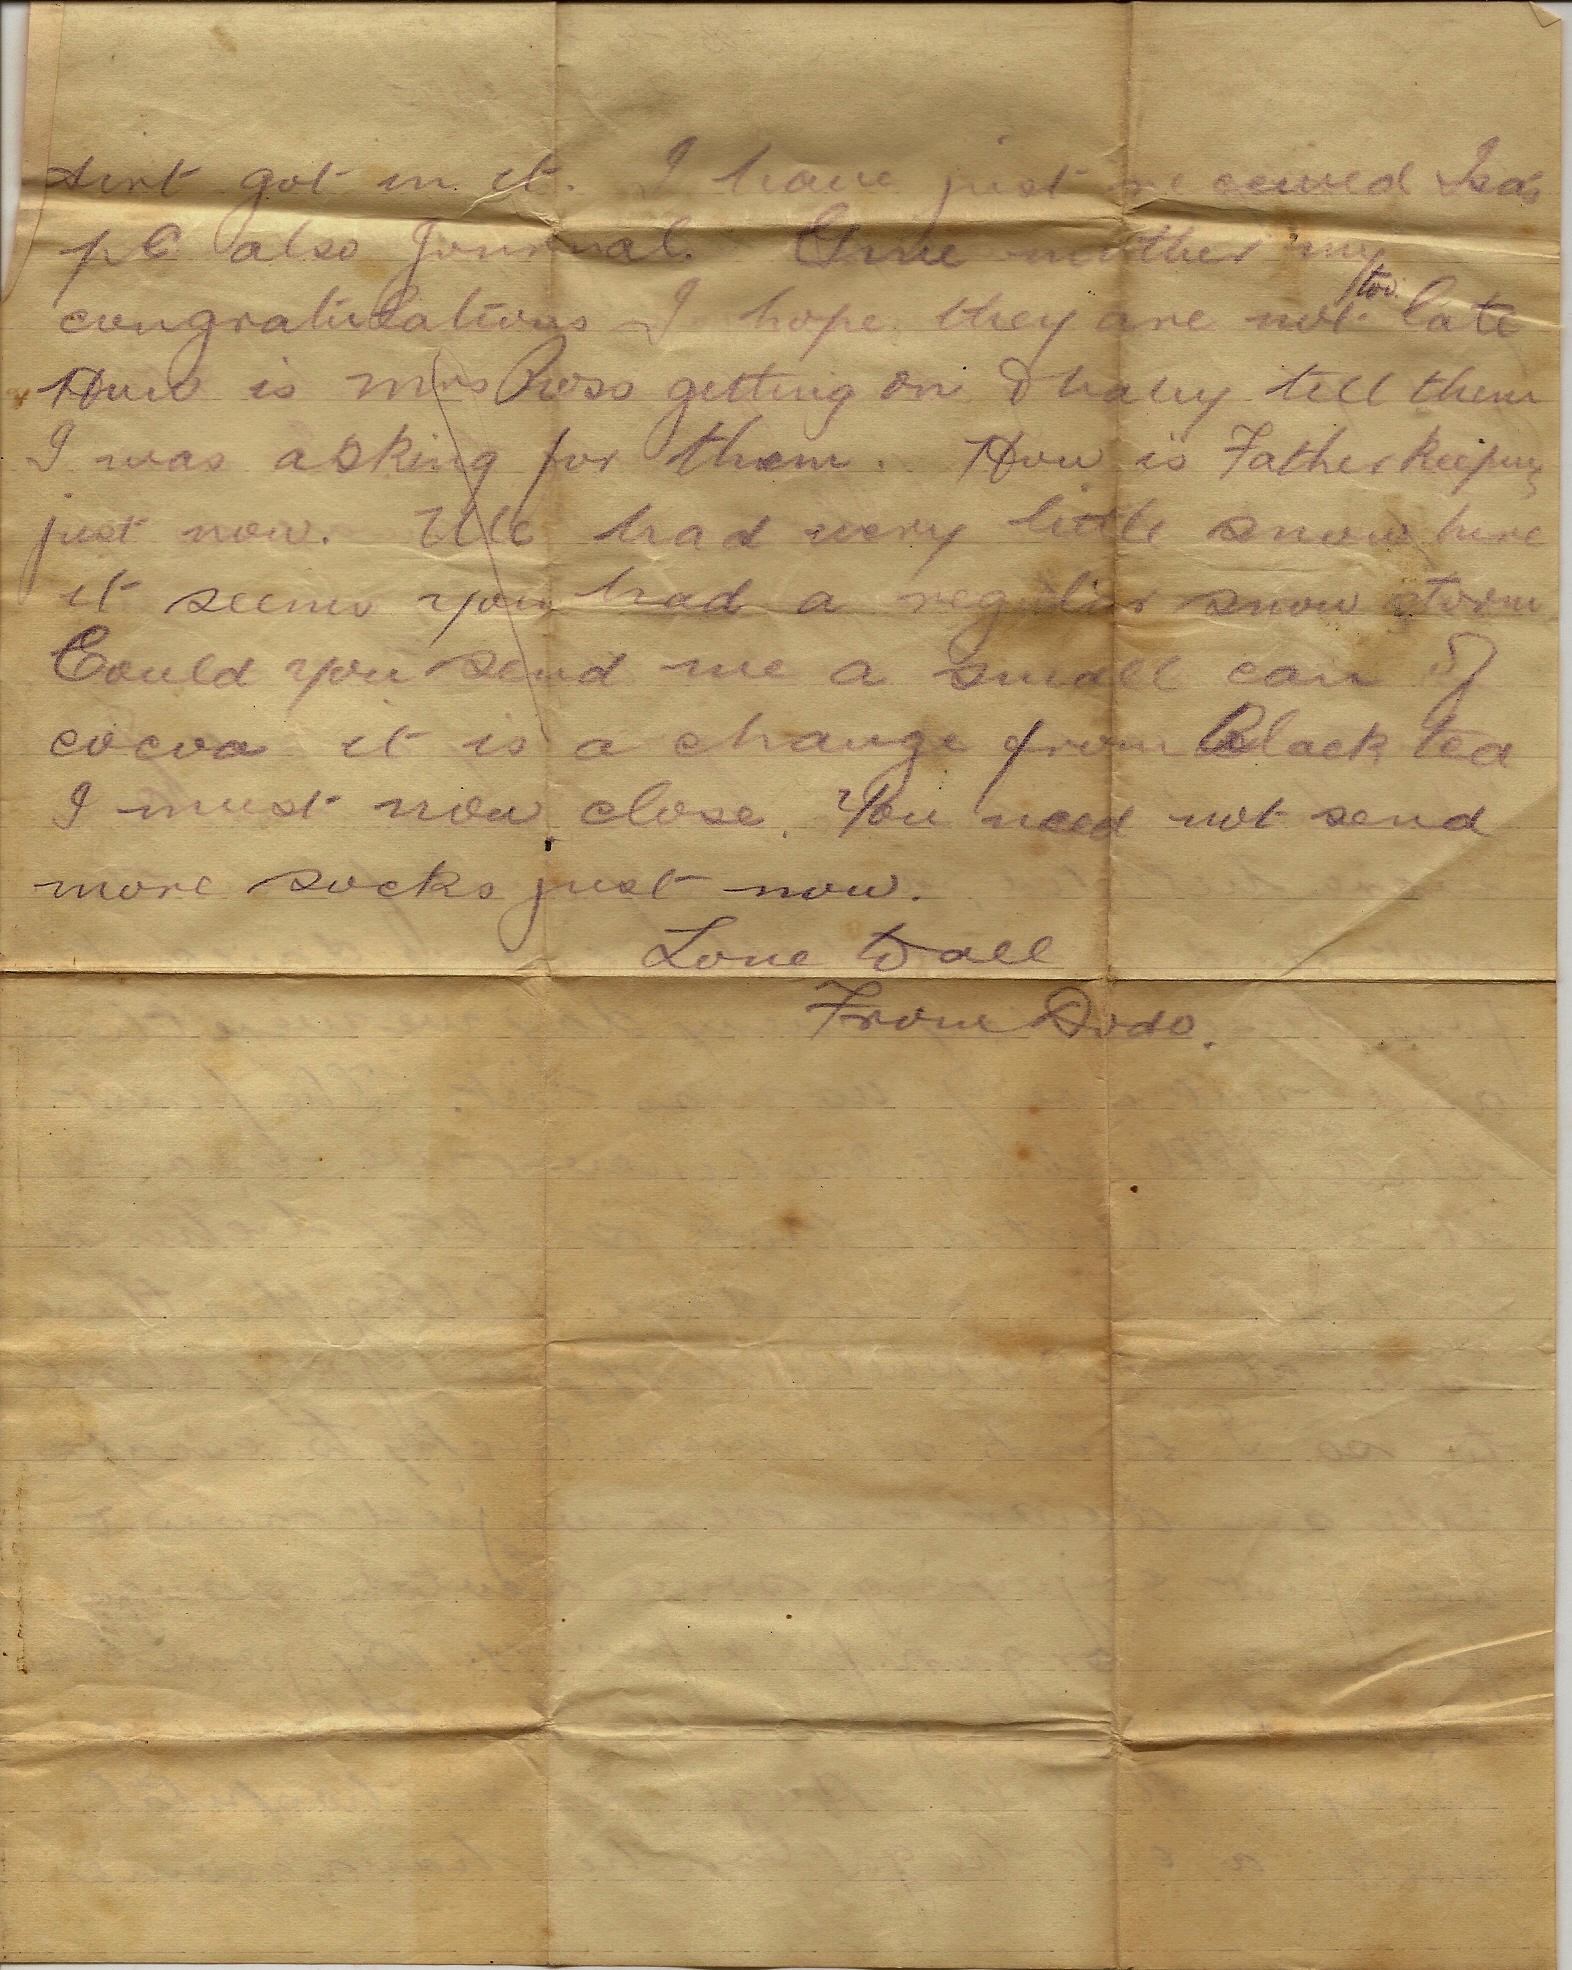 dirt got in it. I have just received Isa's
pC also Journal. Give mother my
congratulations I hope they are not too. late
How is Mrs Ross getting on & baby tell them
I was asking for them. How is Father keeping
just now. We had very little snow here
it seems you had a regular snow storm
Could you send me a small can of
cocoa it is a change from Black tea
I must now close. You need not send
more socks just now.
Love to all
From Dodo.